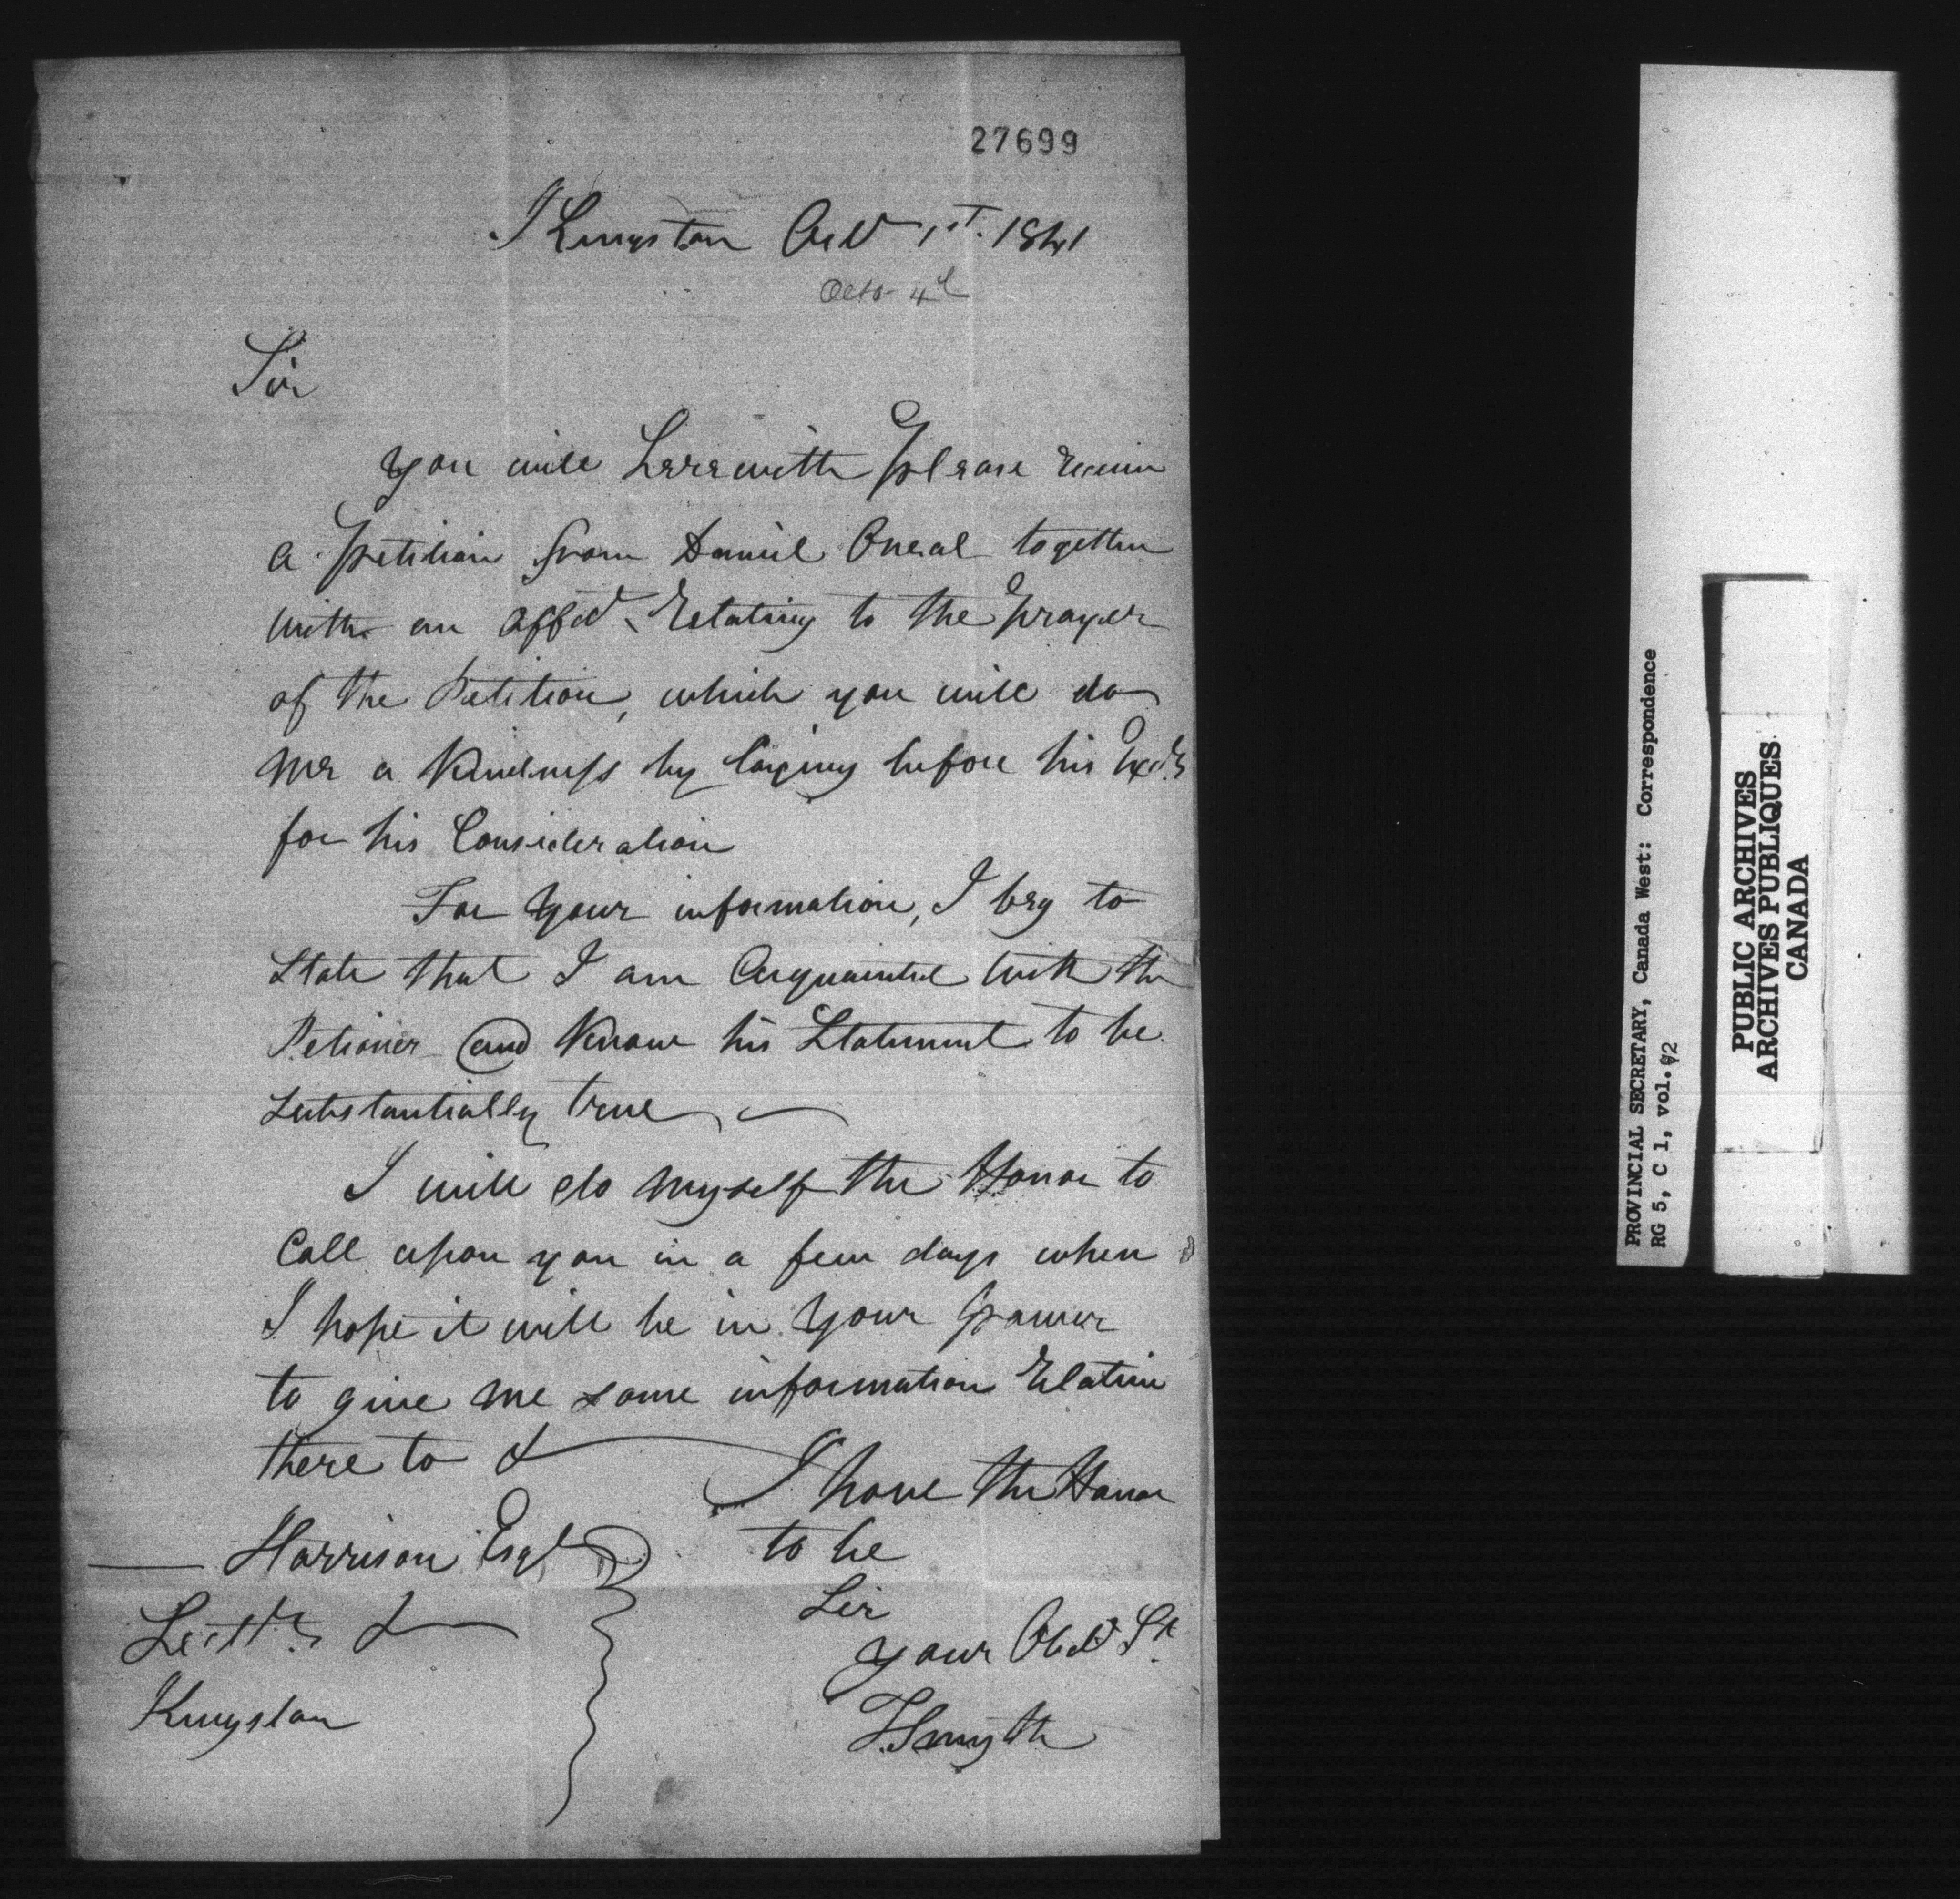 27699
Kingston Octr 1st. 1841
Octo. 4th
Sir
you will herewith please receive
a petition from Daniel Oneal together
with an affid. Relating to the prayer
of the Petition, which you will do
me a kindness by laying before his Excly
for his Consideration
For your information, I beg to
State that I am acquainted with the
Petioner and know his Statement to be
substantially true
I will do myself the Honor to
Call upon you in a few days when
I hope it will be in your power
to give me some information Relative
there to &
I have the Honor
to be
Sir
your Obdt St.
T. Smyth
Harrison Esqr
Secty &
Kingston
PROVINCIAL SECRETARY, Canada West: Correspondence
RG 5, C 1, vol. 72
PUBLIC ARCHIVES
ARCHIVES PUBLIQUES
CANADA